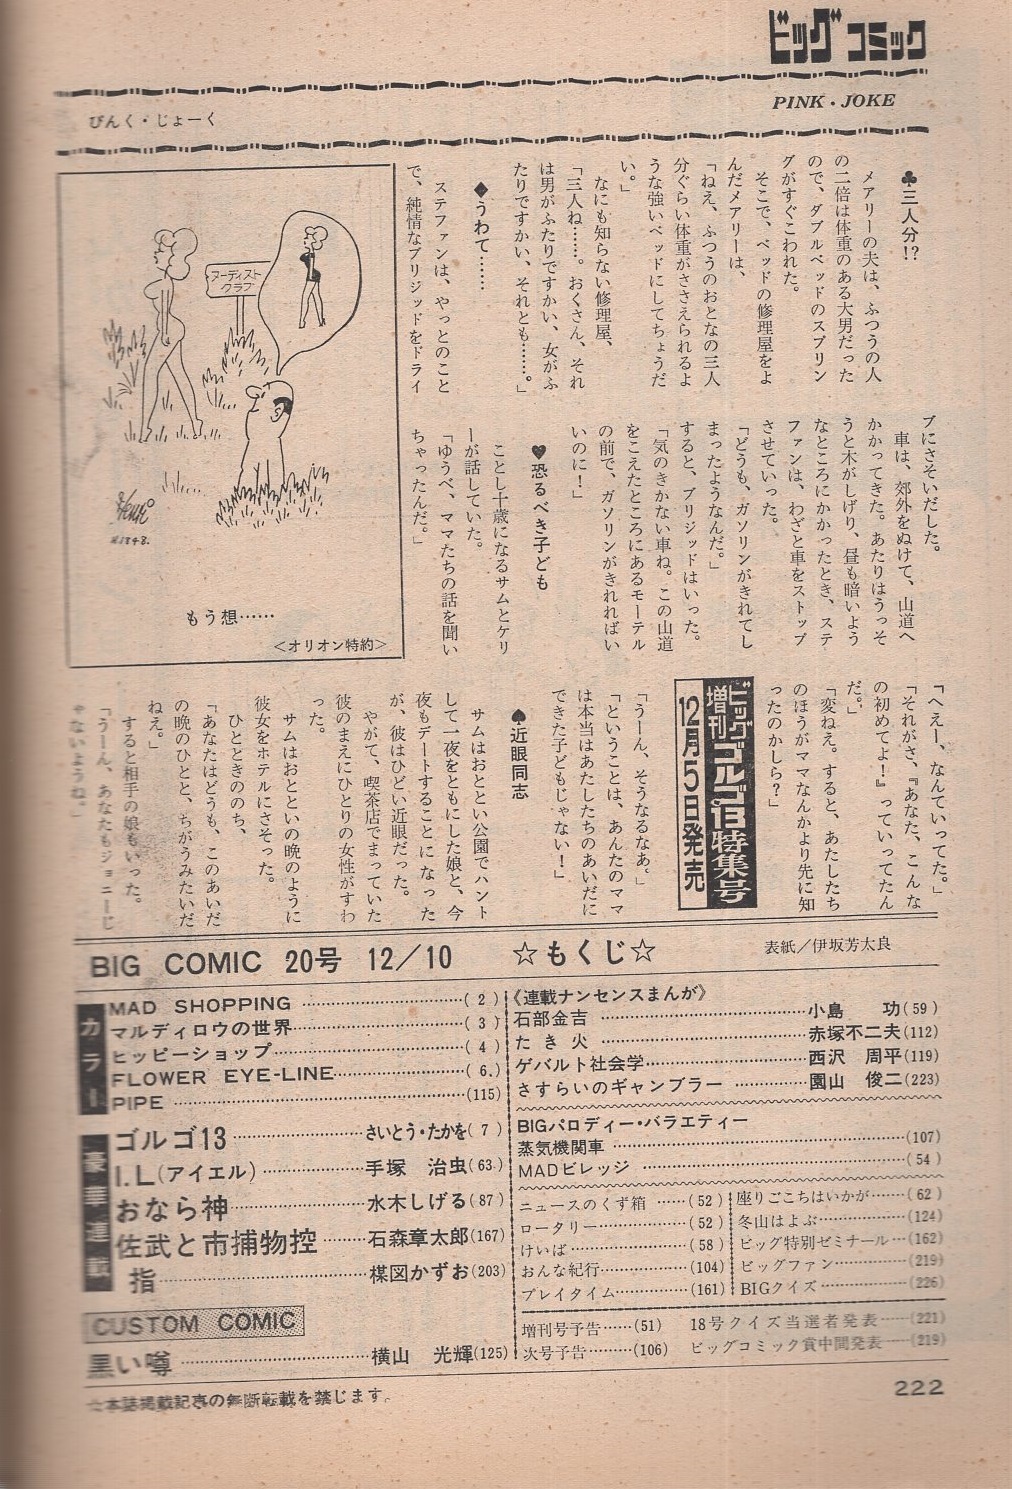 ビッグコミック
PINK・JOKE
ぴんく・じょーく
♣三人分!?
メアリーの夫は、ふつうの人
の二倍は体重のある大男だった
ので、ダブルベッドのスプリン
グがすぐこわれた。
そこで、ベッドの修理屋をよ
んだメアリーは、
「ねえ、ふつうのおとなの三人
分ぐらい体重がささえられるよ
うな強いベッドにしてちょうだ
い。」
なにも知らない修理屋、
「三人ね……。おくさん、それ
は男がふたりですかい、女がふ
たりですかい、それとも……。」
◆うわて……
ステファンは、やっとのこと
で、純情なブリジッドをドライ
ブにさそいだした。
車は、郊外をぬけて、山道へ
かかってきた。あたりはうっそ
うと木がしげり、昼も暗いよう
なところにかかったとき、ステ
ファンは、わざと車をストップ
させていった。
「どうも、ガソリンがきれてし
まったようなんだ。」
すると、ブリジッドはいった。
「気のきかない車ね。この山道
をこえたところにあるモーテル
の前で、ガソリンがきれればい
いのに！」
♥恐るべき子ども
ことし十歳になるサムとケリ
ーが話していた。
「ゆうべ、ママたちの話を聞い
ちゃったんだ。」
「へえー、なんていってた。」
「それがさ、『あなた、こんな
の初めてよ！』っていってたん
だ。」
「変ねえ。すると、あたしたち
のほうがママなんかより先に知
ったのかしら？」
「うーん、そうなるなあ。」
「ということは、あんたのママ
は本当はあたしたちのあいだに
できた子どもじゃない！」
♠近眼同志
サムはおととい公園でハント
して一夜をともにした娘と、今
夜もデートすることになった
が、彼はひどい近眼だった。
やがて、喫茶店でまっていた
彼のまえにひとりの女性がすわ
った。
サムはおとといの晩のように
彼女をホテルにさそった。
ひとときののち、
「あなたはどうも、このあいだ
の晩のひとと、ちがうみたいだ
ねえ。」
すると相手の娘もいった。
「うーん、あなたもジョニーじ
ゃないようね。」
ヌーディスト
クラブ
もう想……
<オリオン特約>
ビッグ増刊ゴルゴ13特集号
12月5日発売
BIG COMIC 20号 12/10 ☆もくじ☆
表紙/伊坂芳太良
カラー
MAD SHOPPING ……(2)
マルディロウの世界……(3)
ヒッピーショップ……(4)
FLOWER EYE-LINE……(6)
PIPE ……(115)
豪華連載
ゴルゴ13……さいとう・たかを(7)
I.L(アイエル)……手塚 治虫(63)
おなら神……水木しげる(87)
佐武と市捕物控……石森章太郎(167)
指……楳図かずお(203)
CUSTOM COMIC
黒い噂……横山 光輝(125)
《連載ナンセンスまんが》
石部金吉……小島 功(59)
たき火……赤塚不二夫(112)
ゲバルト社会学……西沢 周平(119)
さすらいのギャンブラー……園山 俊二(223)
BIGパロディー・バラエティー
蒸気機関車……(107)
MADビレッジ……(54)
ニュースのくず箱……(52)
ロータリー……(52)
けいば……(58)
おんな紀行……(104)
プレイタイム……(161)
座りごこちはいかが……(62)
冬山はよぶ……(124)
ビッグ特別ゼミナール…(162)
ビッグファン……(219)
BIGクイズ……(226)
増刊号予告……(51)
次号予告……(106)
18号クイズ当選者発表……(221)
ビッグコミック賞中間発表……(219)
☆本誌掲載記事の無断転載を禁じます。
222